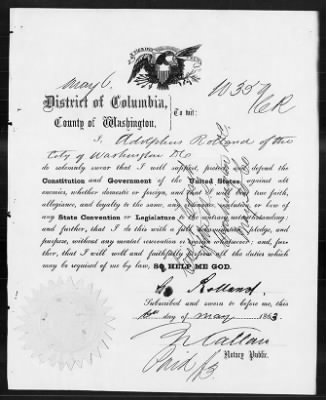 May 6.
10359
District of Columbia,
County of Washington.
To wit:
I, Adolphus Rolland of the
City of Washington DC
do solemnly swear that I will support, protect, and defend the
Constitution and Government of the United States against all
enemies, whether domestic or foreign, and that I will bear true faith,
allegiance, and loyalty to the same, any ordinance, resolution or law of
any State Convention or Legislature to the contrary notwithstanding;
and further, that I do this with a full determination, pledge, and
purpose, without any mental reservation or evasion whatsoever; and, fur-
ther, that I will well and faithfully perform all the duties which
may be required of me by law, SO HELP ME GOD.
A. Rolland.
Subscribed and sworn to before me, this
day of May 1863.
N Callan
Notary Public.
Paid